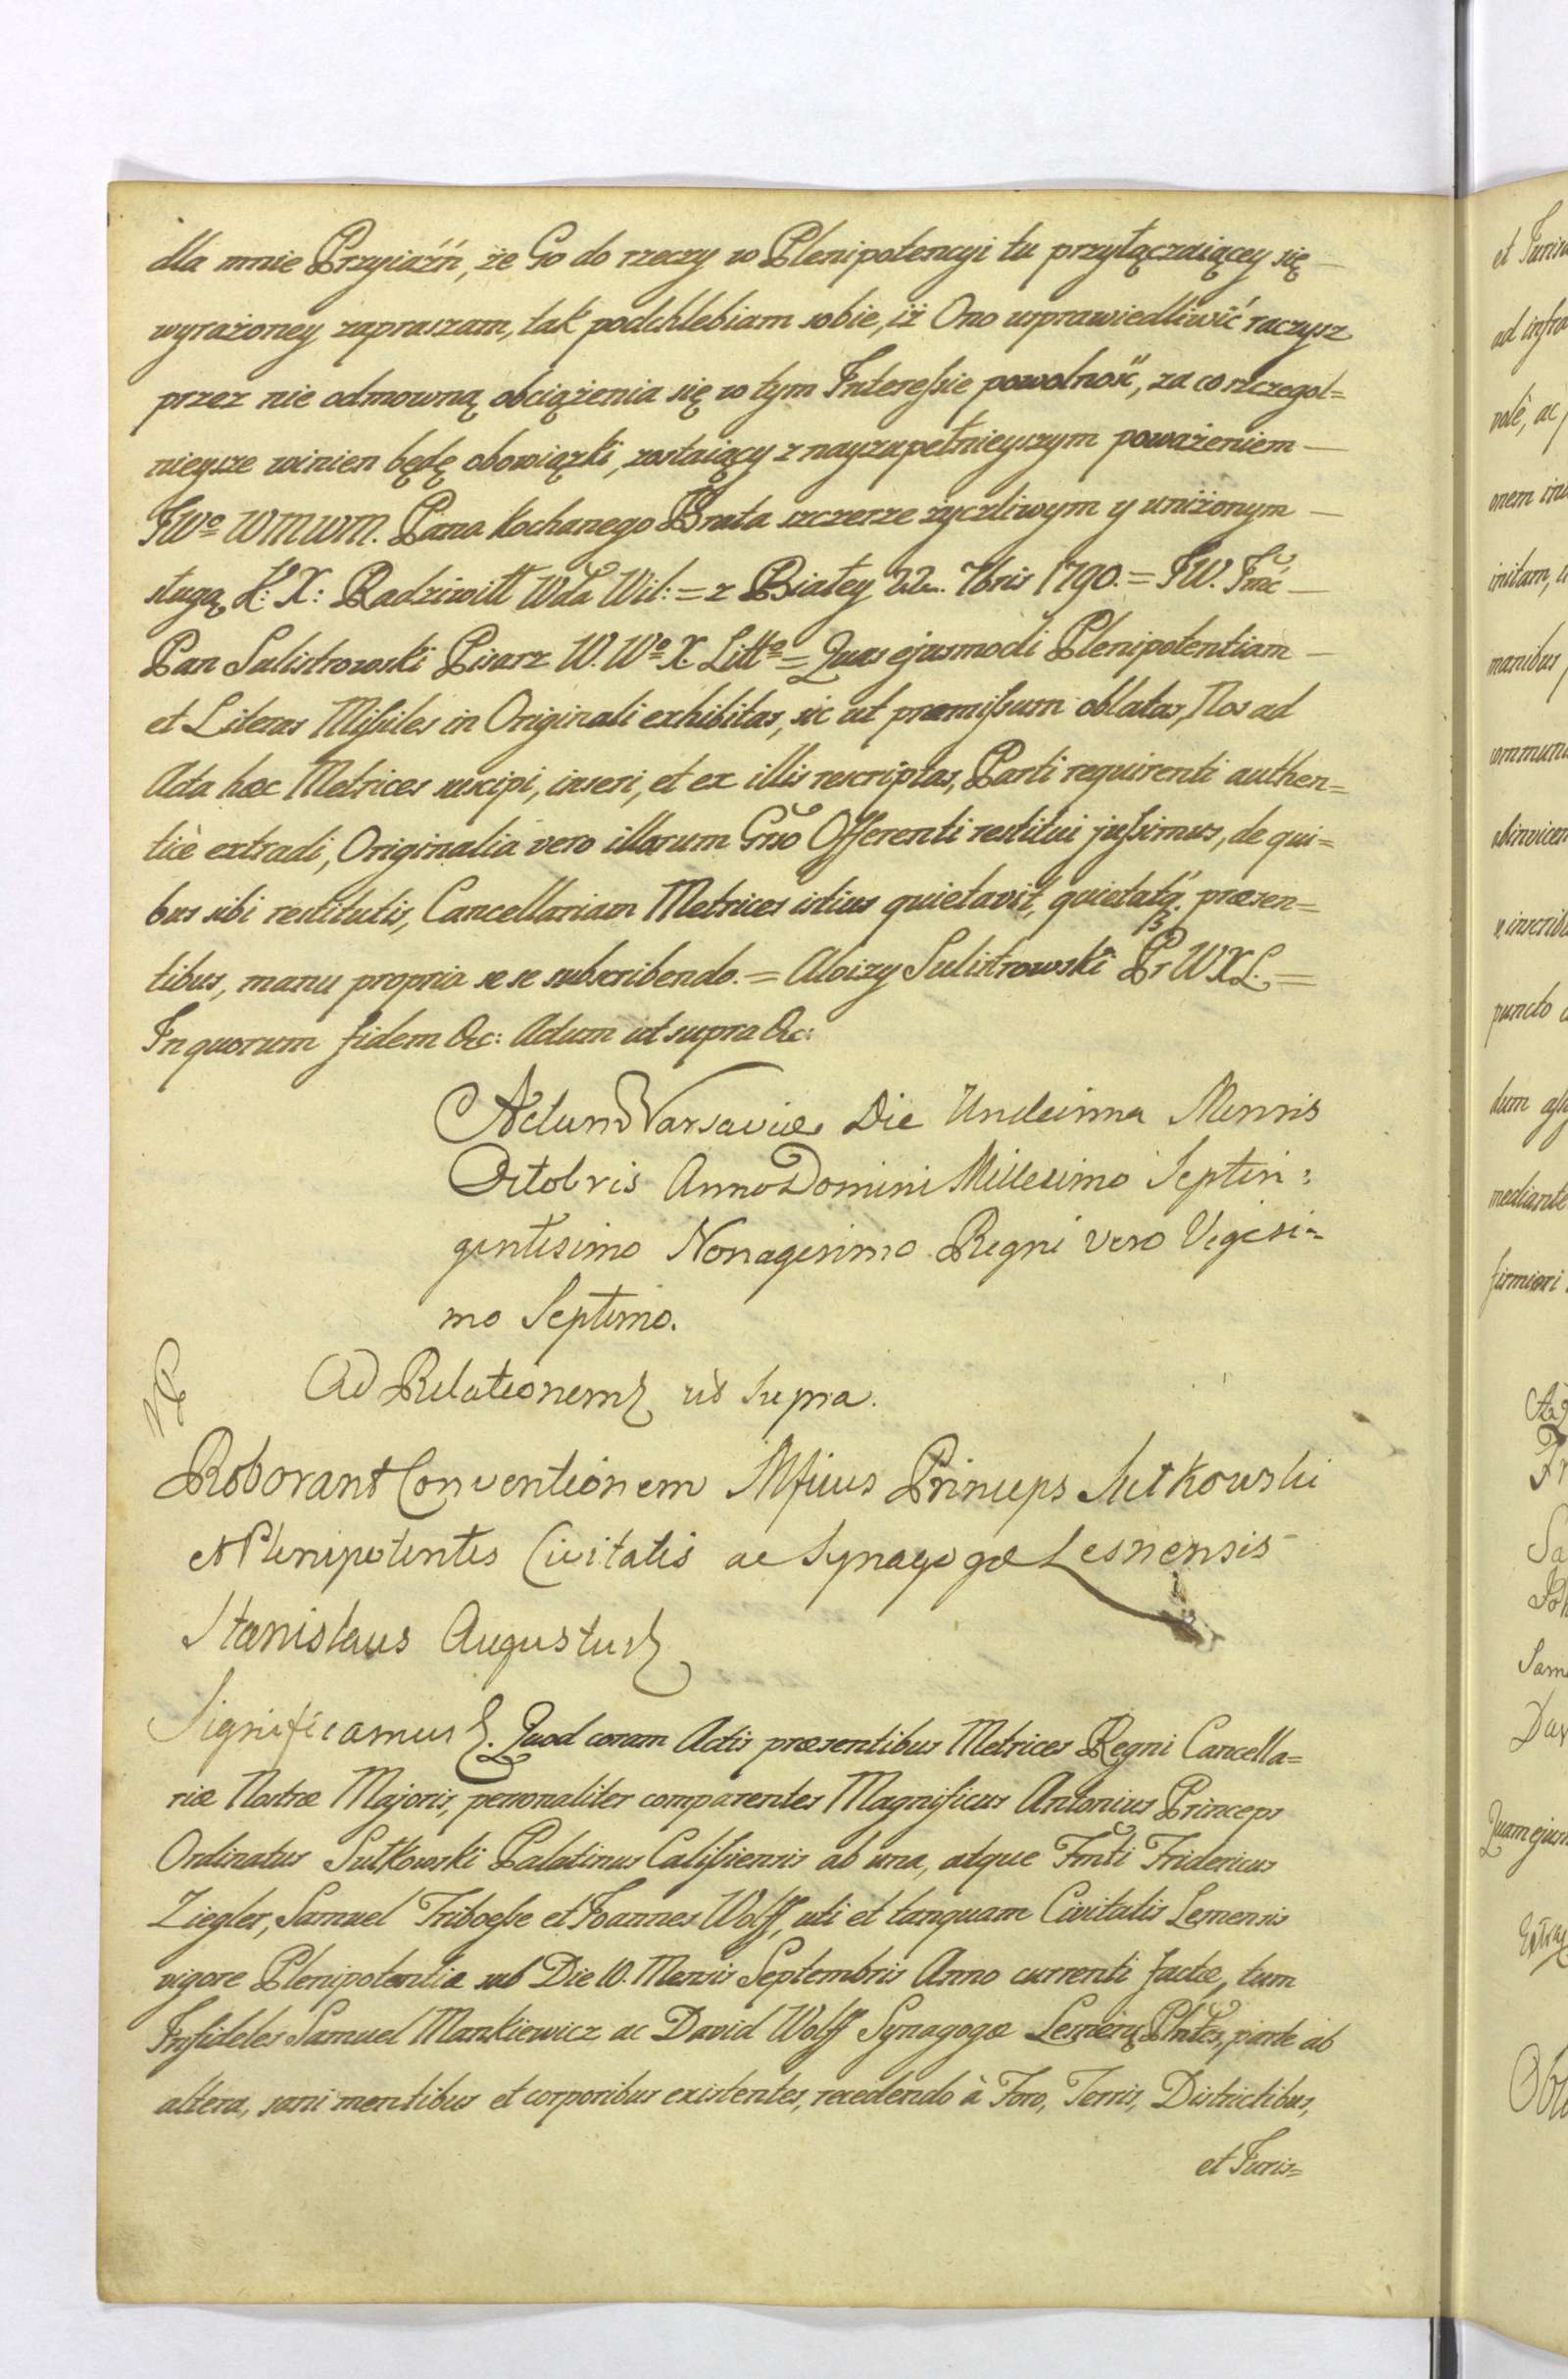 dla mnie Przyiaźń, że Go do rzeczy w Plenipotencyi tu przyłączaiącey się
wyrażoney zapraszam, tak podchlebiam sobie, iż Ono usprawiedliwić raczysz
przez nie odmowną obciążenia się w tym Interessie powolność, za co szczegol=
nieysze winien będę obowiązki, zostaiący z nayzupełnieyszym poważeniem
JWo WMWM. Pana Kochanego Brata szczerze życzliwym y uniżonym
sługą K: X: Radziwiłł Wda Wil: = z Białey 22. 7bris 1790. = JW.
Pan Sulistrowski Pisarz W. Wo X. Litto = Quas ejusmodi Plenipotentiam
et Literas Missiles in Originali exhibitas, sic ut præmissum oblatas, Nos ad
Acta hæc Metrices suscipi, inseri, et ex illis rescriptas, Parti requirenti authen=
ticè extradi, Originalia vero illorum Gnso Offerenti restitui jussimus, de qui=
bus sibi restitutis, Cancellariam Metrices istius quietavit, præsen=
tibus, manu propria se se subscribendo. = Aloizy Sulistrowski Pr WXL. =
In quorum fidem &c: Actum ut supra &c:
Actum Varsaviæ Die Undecima Mensis
Octobris Anno Domini Millesimo Septin=
gentesimo Nonagesimo Regni vero Vigesi=
mo Septimo.
Ad Relationem ut supra.
Roborant Conventionem Mfius Princeps Sutkowski
et Plenipotentes Civitatis ac Synagogæ Lesnensis
Stanislaus Augustus
Significamus. Quod coram Actis præsentibus Metrices Regni Cancella=
riæ Nostræ Majoris, personaliter comparentes Magnificus Antonius Princeps
Ordinatus Sułkowski Palatinus Calissiensis ab una, atque Fmti Fridericus
Ziegler, Samuel Triboesse et Joannes Wolff, uti et tanquam Civitatis Lesnensis
vigore Plenipotentiæ sub Die 10. Mensis Septembris Anno currenti factæ, tum
Infideles Samuel Mankiewicz ac David Wolff Synagogæ Plntes, parte ab
altera, sani mentibus et corporibus existentes, recedendo à Foro, Terris, Districtibus,
et Juris=